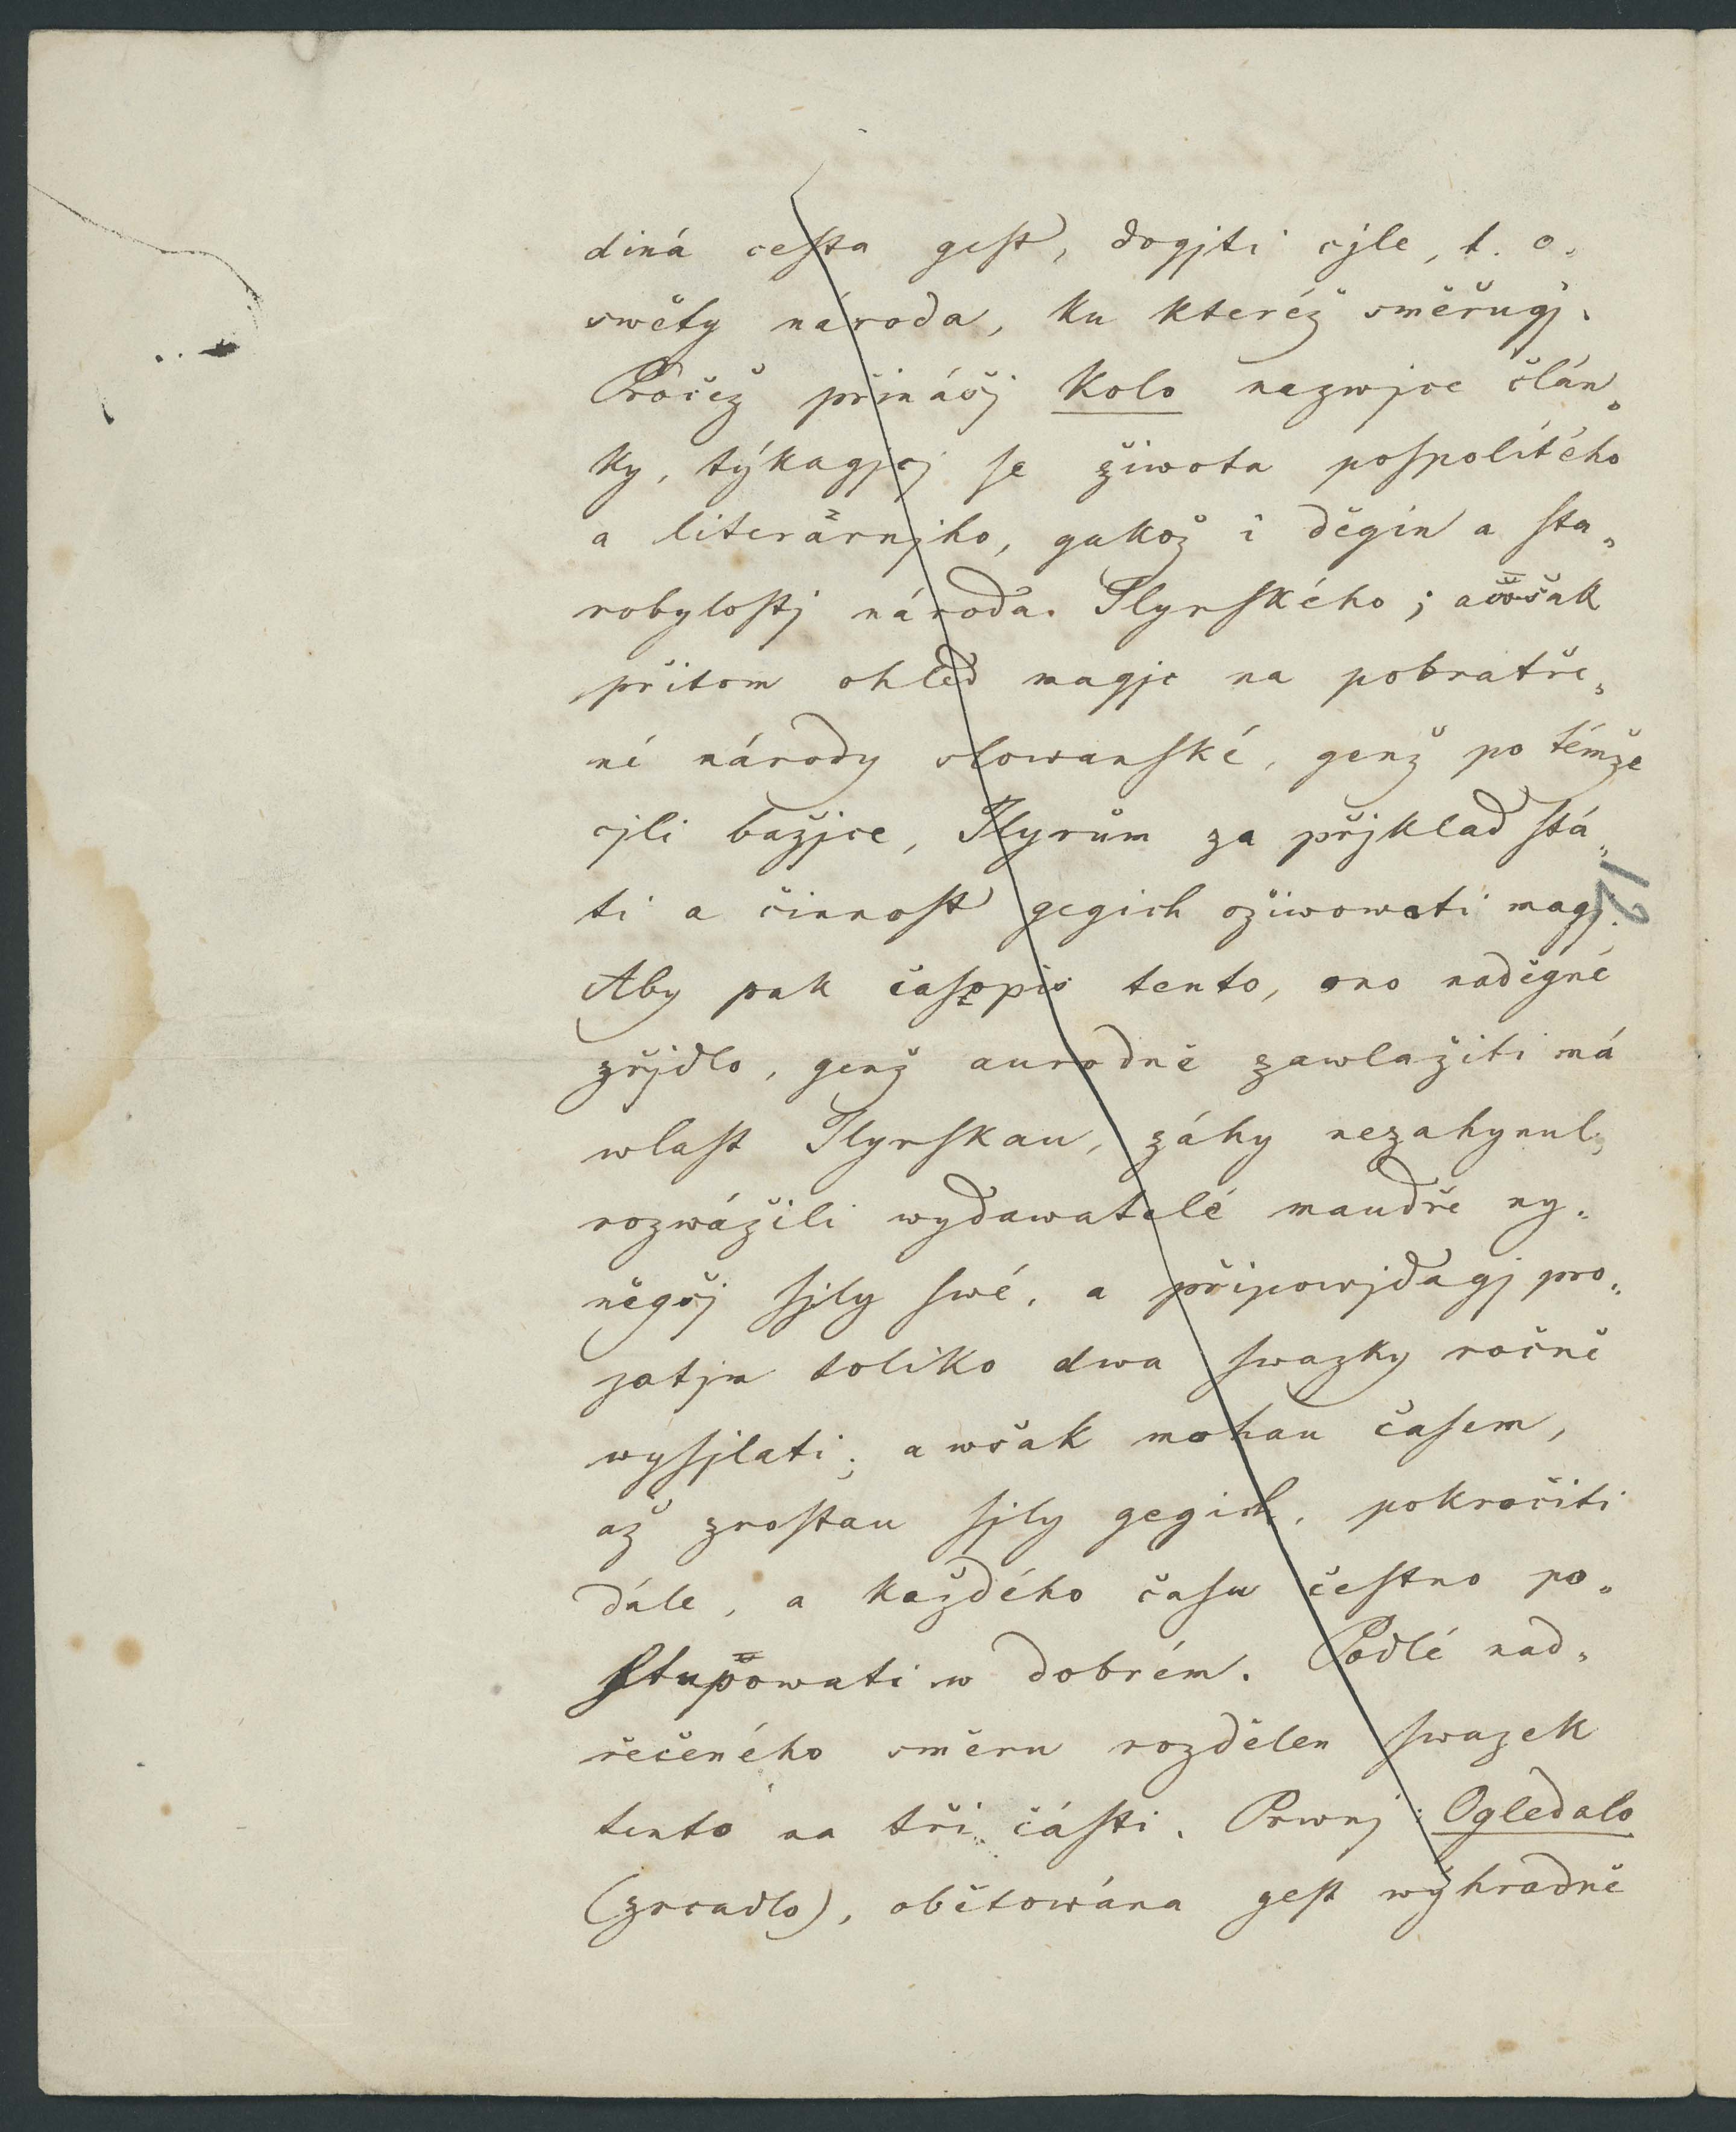 diná cesta gest, dogjti cyle, t. o„
swěty národa, ku kteréž směřugj.
Pročež přinášj Kolo nazwjce člán„
ky, týkagjcj se žiwota pospolitého
a literárnjho, gakož i děgin a sta„
robylostj národa Ilyrského; awšak
přitom ohled magjc na pobratře„
né národy slowanské, genž po témže
cjli bažjce, Ilyrům za přjklad stá„
ti a činnost gegich oživowati magj.
12
Aby pak časopis tento, ono naděgné
zřjdlo, genž aurodně zawlažiti má
wlast Ilyrskau, záhy nezahynul,
rozwážili wydawatelé maudře ny„
něgšj sjly swé, a připowjdagj pro„
zatjm toliko dwa swazky ročně
wysjlati; awšak mohau časem,
až zrostau sjly gegich, pokročiti
dále, a každého času čestno po„
stupowati w dobrém. Podlé nad„
řečeného směru rozdělen swazek
tento na tři části. Prwnj: Ogledalo
(zrcadlo), obětowána gest wýhradně